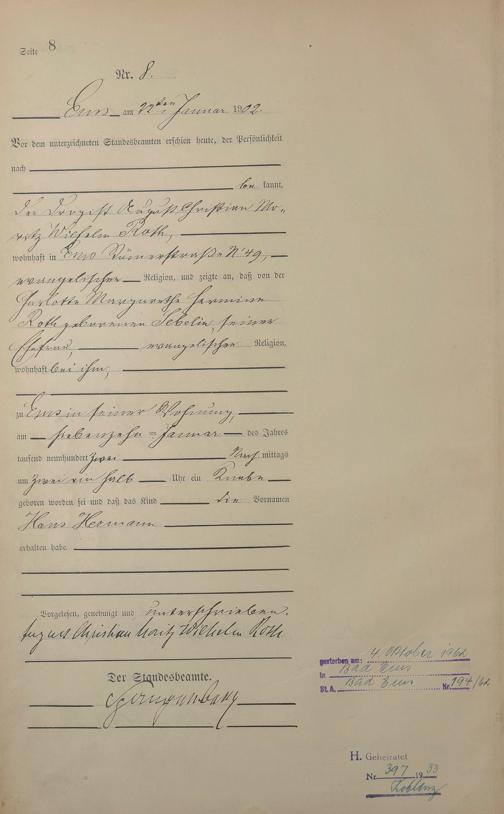 Seite 8
Nr. 8.
Ems am 22ten Januar 1902
Vor dem unterzeichneten Standesbeamten erschien heute, der Persönlichkeit
nach
be kannt,
der Drogist August Christian Mo-
ritz Wilhelm Roth,
wohnhaft in Ems Römerstraße N 49,
evangelischer Religion, und zeigte an, daß von der
Charlotte Margarethe Hermine
Roth geborenen seiner
Ehefrau, evangelischer Religion,
wohnhaft bei ihm,
zu Ems in seiner Wohnung,
am siebenzehn Januar des Jahres
tausend neunhundert zwei Nach mittags
um zwei ein halb Uhr ein Knabe
geboren worden sei und daß das Kind die Vornamen
Hans Hermann
erhalten habe
Vorgelesen, genehmigt und unterschrieben.
August Christian Moritz Wilhelm Roth
Der Standesbeamte.
gestorben am: 4. Oktober 1962
in Bad Ems
St. A. Bad Ems Nr. 194/62
H. Geheiratet
Nr. 397 1933
Koblenz